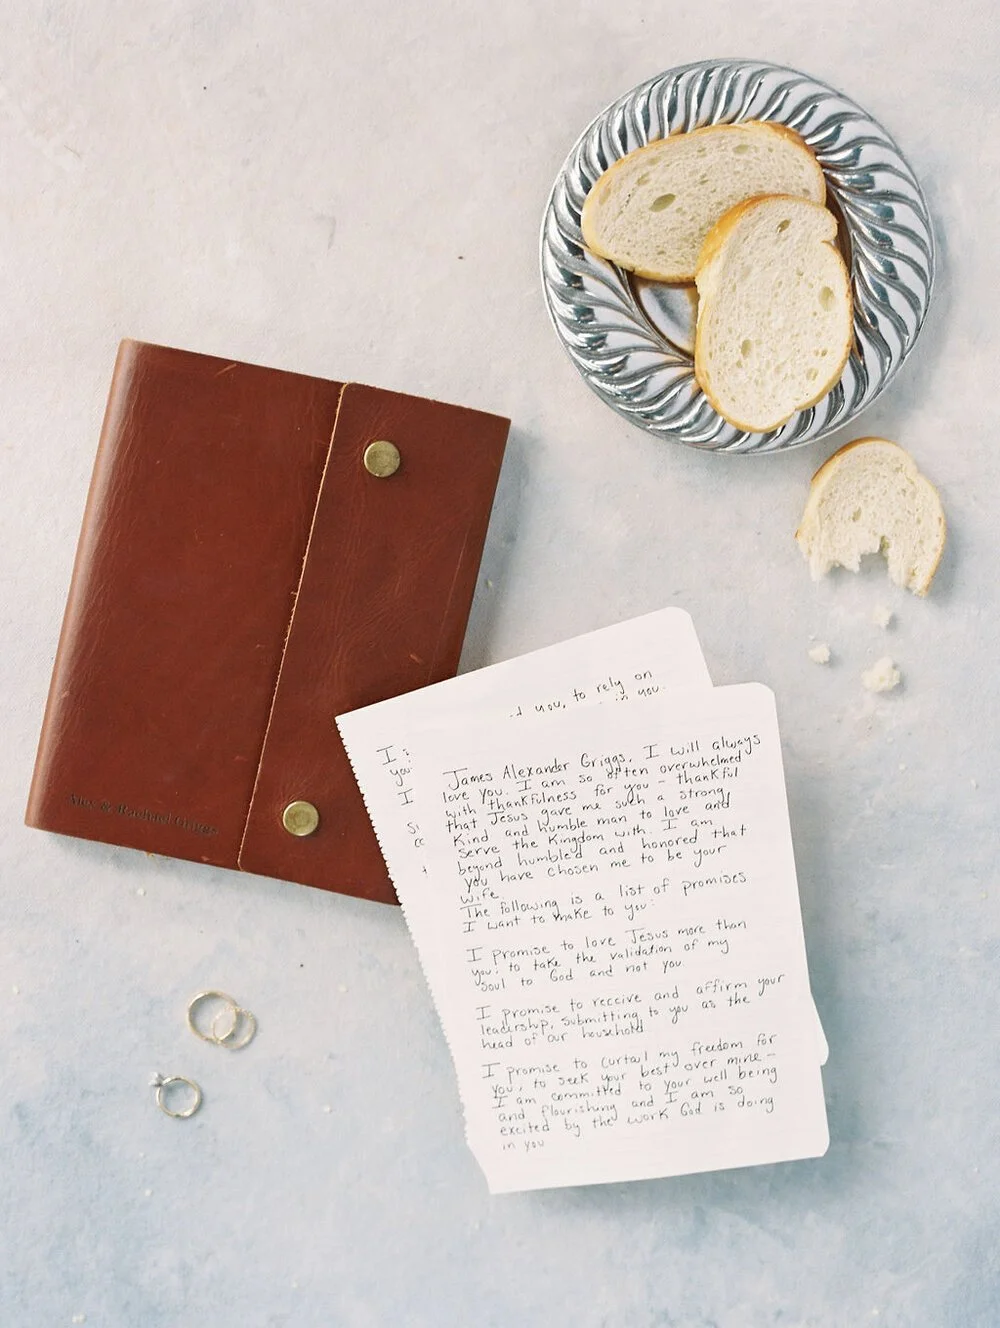 Alex & Rachael Griggs
d you, to rely on
in you.
I
you
I
James Alexander Griggs, I will always
love you. I am so often overwhelmed
with thankfulness for you - thankful
that Jesus gave me such a strong,
Kind and humble man to love and
serve the Kingdom with. I am
beyond humbled and honored that
you have chosen me to be your
wife.
The following is a list of promises
I want to make to you:
I promise to love Jesus more than
you; to take the validation of my
soul to God and not you.
I promise to receive and affirm your
leadership, submitting to you as the
head of our household
I promise to curtail my freedom for
you, to seek your best over mine -
I am committed to your well being
and flourishing and I am so
excited by the work God is doing
in you